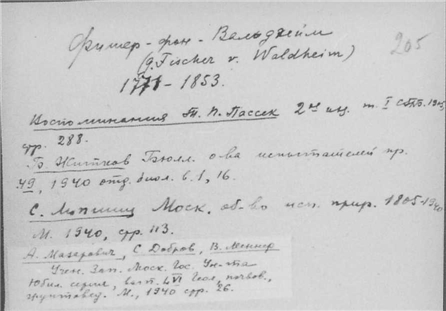 Фишер-фон-Вальдгейм
205
(G. Fischer v. Waldheim)
1771-1853.
Воспоминания Т. П. Пассек 2ое изд. т. I СПБ. 1905,
стр. 288.
Б. Житков Бюлл. о-ва испытателей пр.
49, 1940 отд. биол. в. 1, 16.
С. Липшиц Моск. об-во исп. прир. 1805-1940
М. 1940, стр. 113.
А. Мазарович, С. Добров, В. Меннер
Учен. Зап. Моск. Гос. Ун-та
Юбил. серия, вып. LVI Геол., почвов.,
грунтовед. М., 1940 стр. 26.